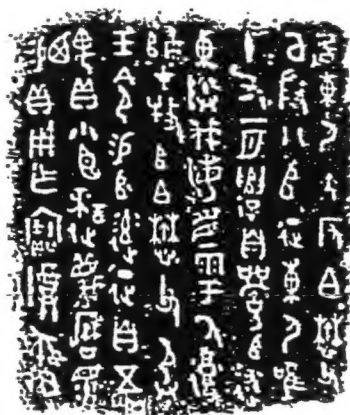 東尸大反白懋
父㠯殷八𠂤征東尸唯
十又一月遣自𠂤述
東伐海眉雩氒復
歸才牧𠂤白懋父承
王令易𠂤征自五
貝小臣蔑曆眔
易貝用乍寶尊彝